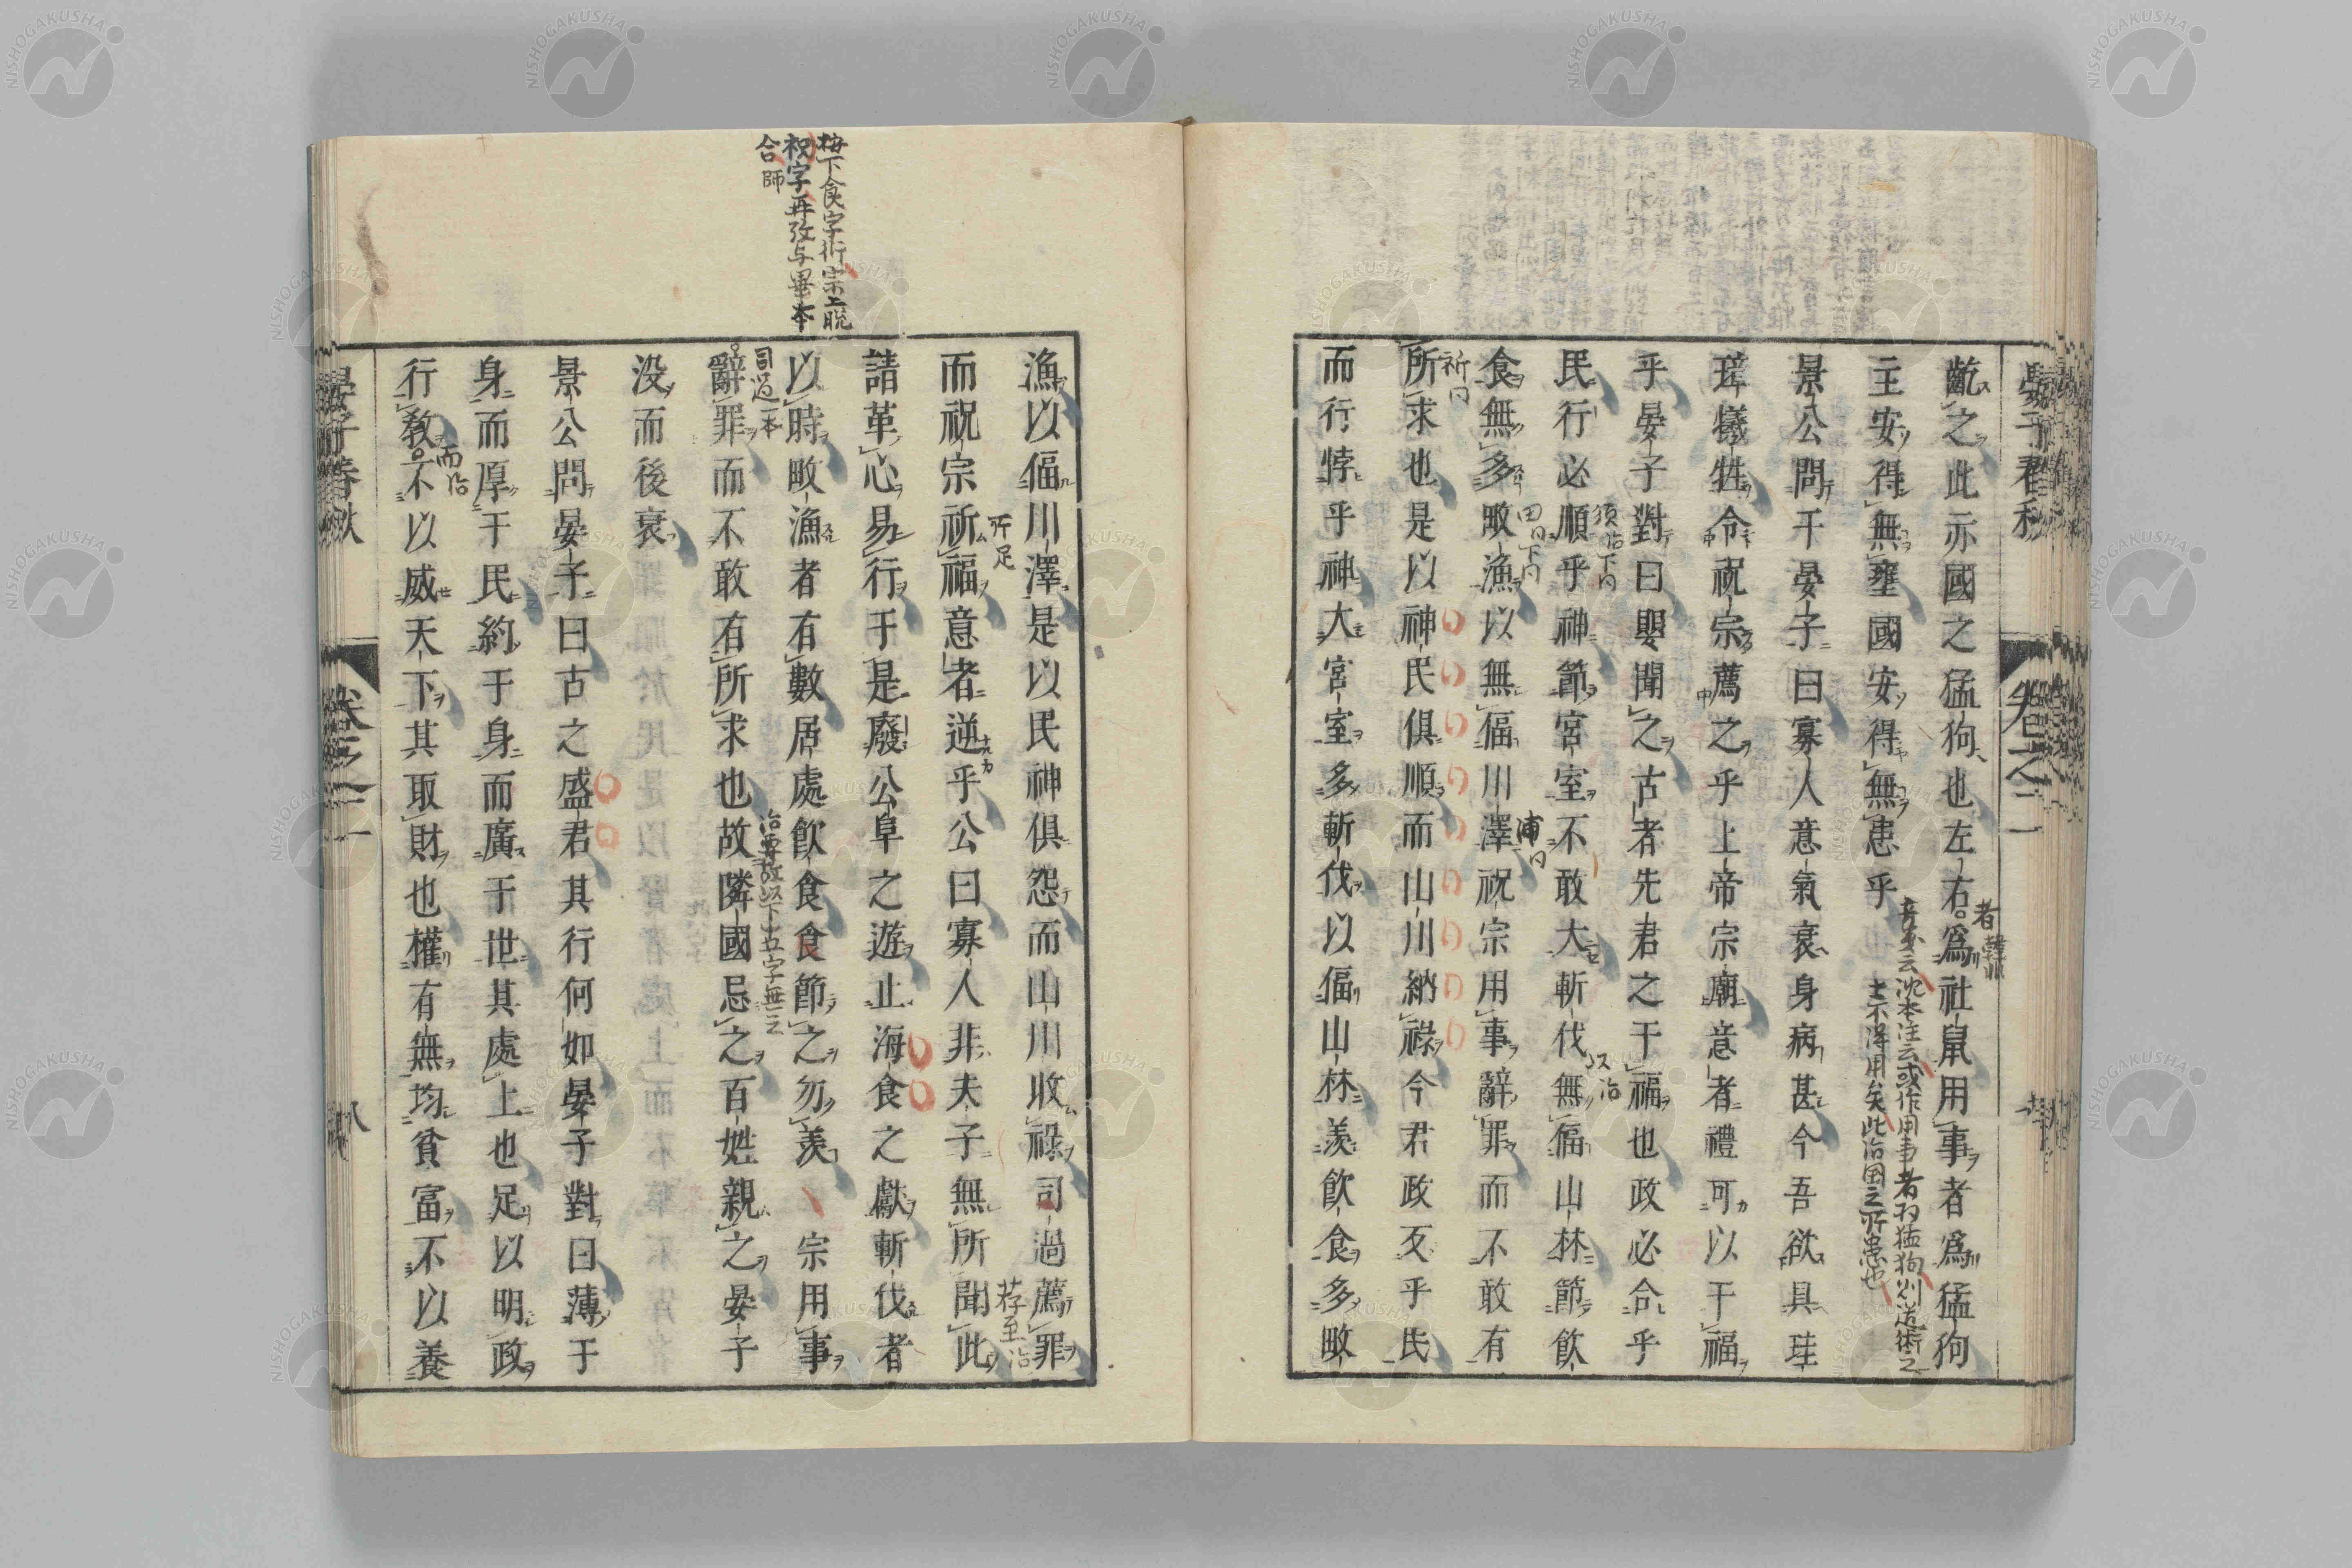 齕之此亦國之猛狗也左右爲社鼠用事者爲猛狗
主安得無壅國安得無患乎
景公問于晏子曰寡人意氣衰身病甚今吾欲具珪
璋犧牲令祝宗薦之乎上帝宗廟意者禮可以干福
乎晏子對曰嬰聞之古者先君之干福也政必合乎
民行必順乎神節宮室不敢大斬伐無偪山林節飲
食無多畋漁以無偪川澤祝宗用事辭罪而不敢有
所求也是以神民俱順而山川納祿今君政反乎民
而行悖乎神大宮室多斬伐以偪山林羨飲食多畋
漁以偪川澤是以民神俱怨而山川收祿司過薦罪
而祝宗祈福意者逆乎公曰寡人非夫子無所聞此
請革心易行于是廢公阜之遊止海食之獻斬伐者
以時畋漁者有數居處飲食食節之勿羨宗用事
辭罪而不敢有所求也故隣國忌之百姓親之晏子
没而後衰
景公問晏子曰古之盛君其行何如晏子對曰薄于
身而厚于民約于身而廣于世其處上也足以明政
行教不以威天下其取財也權有無均貧富不以養
晏子春秋
卷之二
八
梅下食字衍宗上脫
祝字再攷与畢本
合師
司過一本
而治
所足
祈同
田同下同
須治下同
以治
浦同
者韓非
音義云沈本注云或作用事者爲猛狗則道術之
士不得用矣此治國之所患也
治要故以下十五字無之